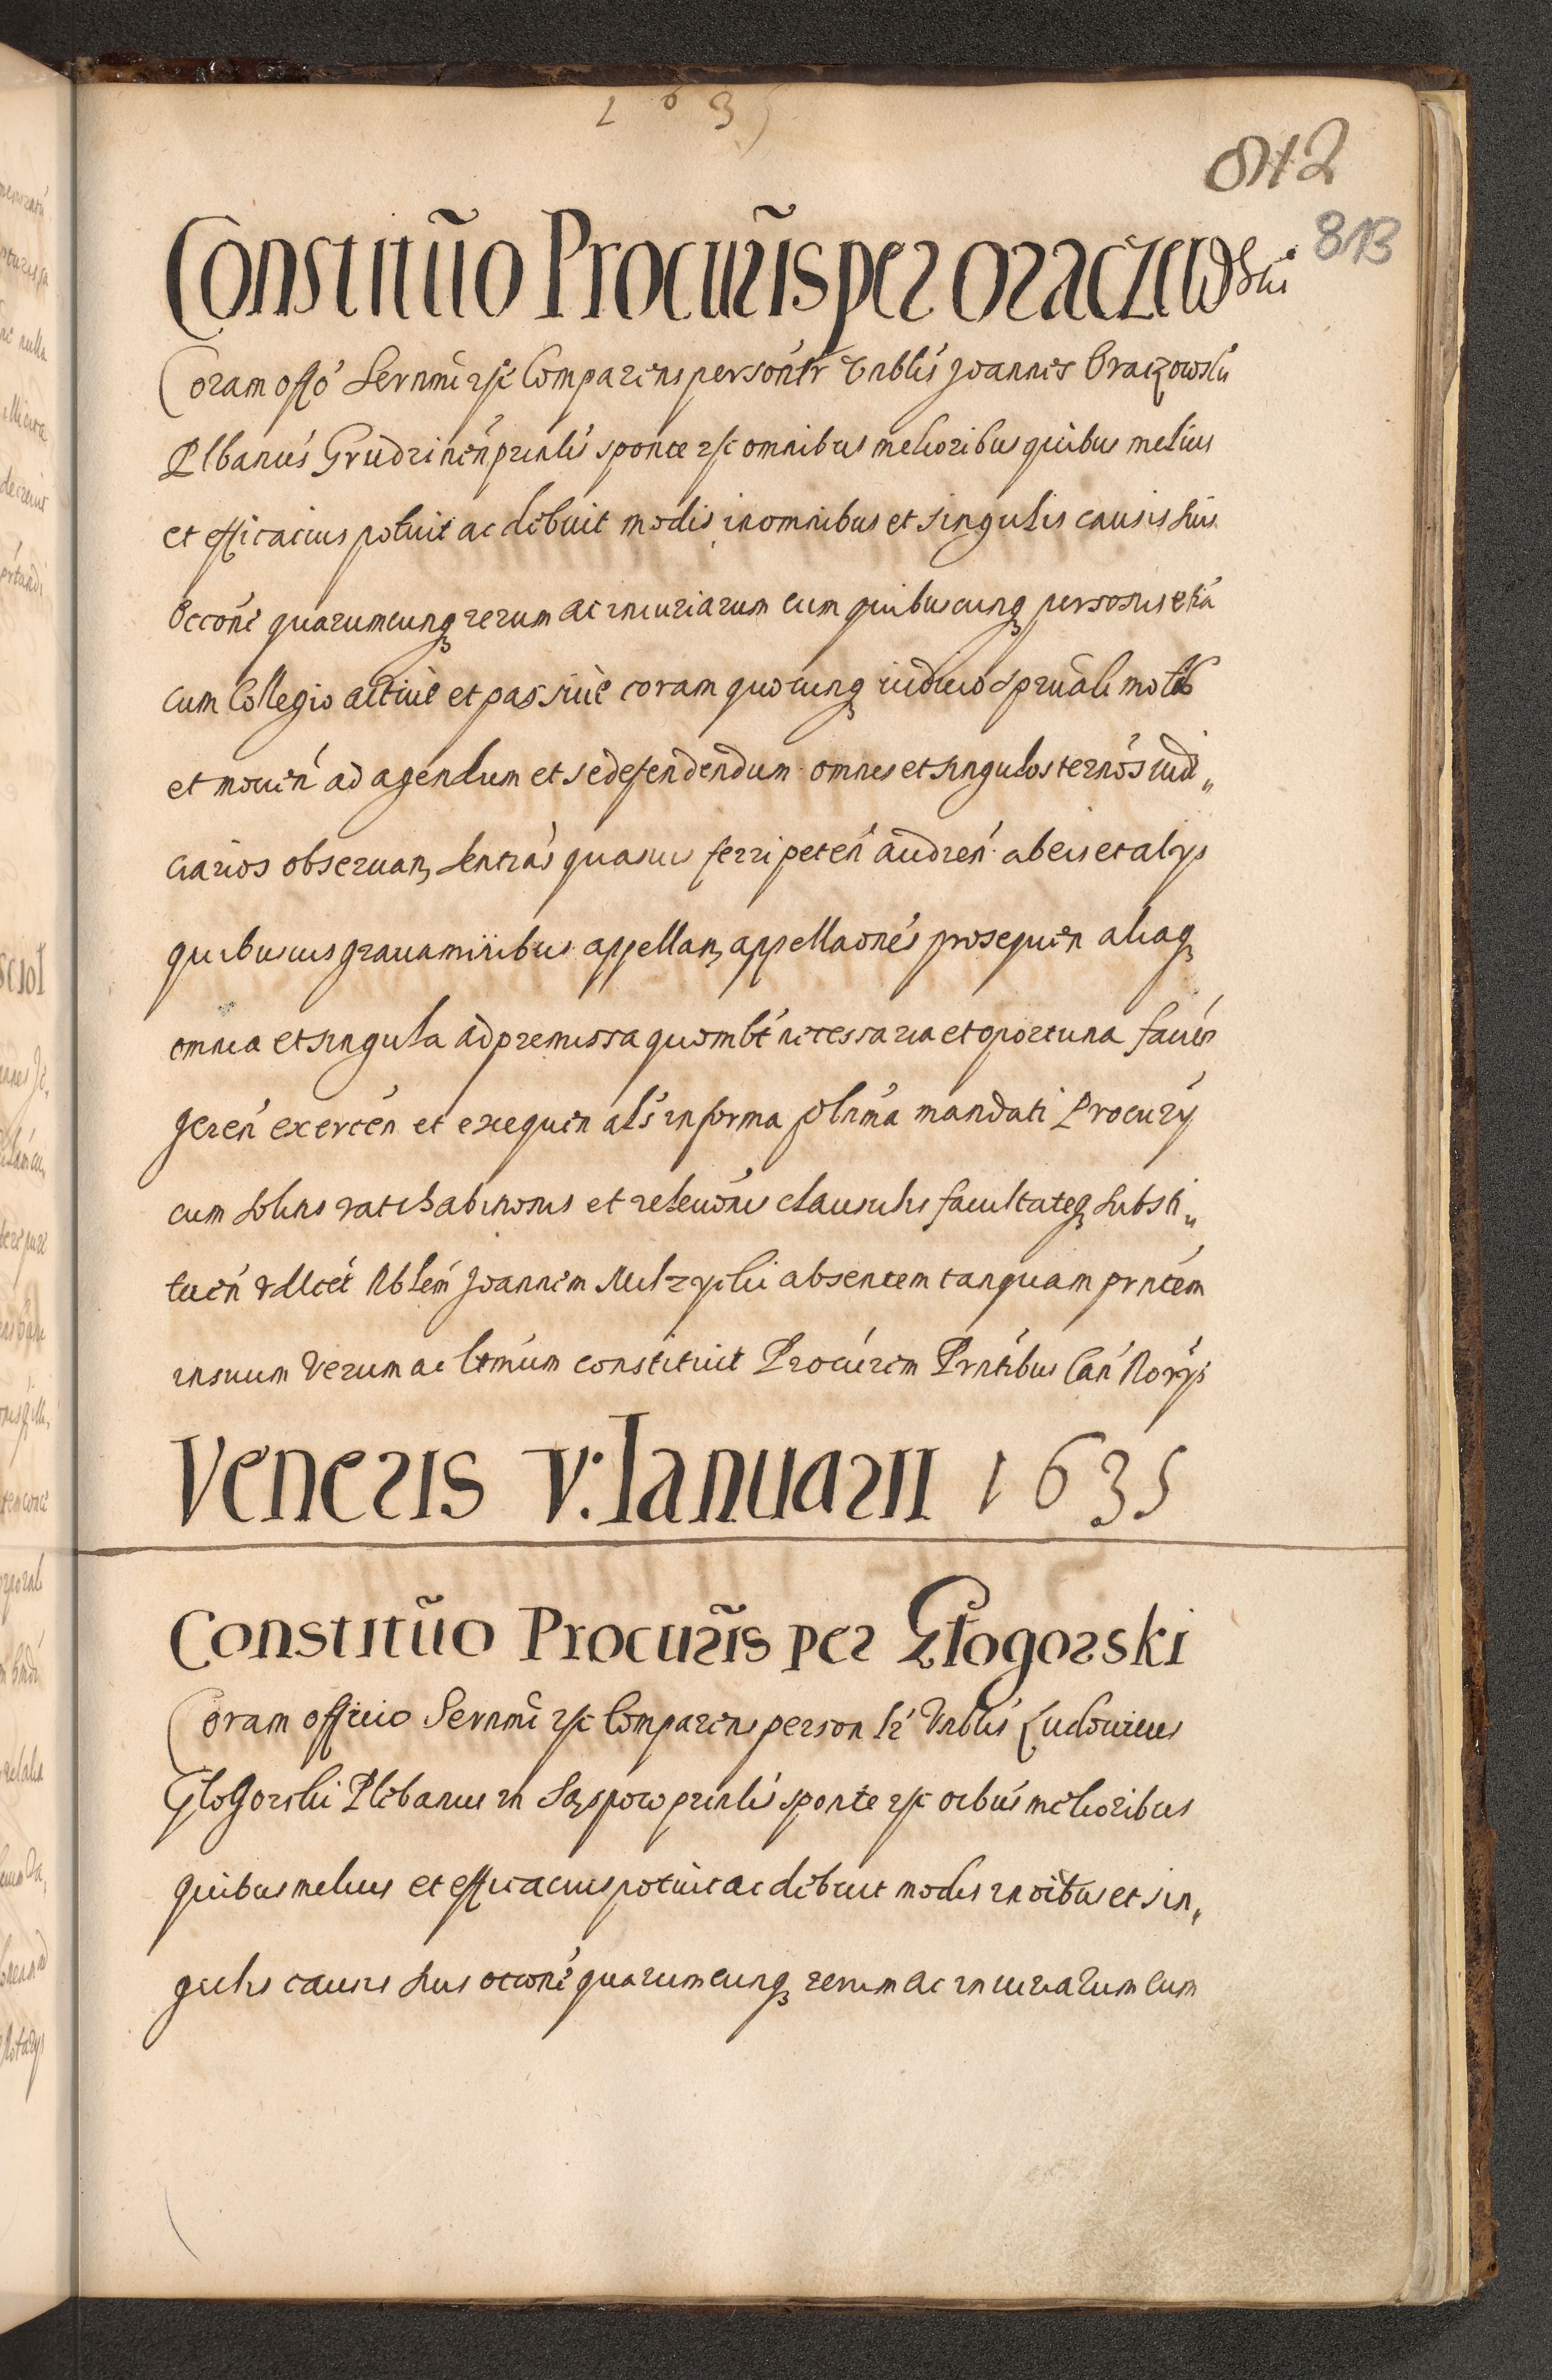 1635
842
813
Constitũo Procur̃is per oraczewski
Coram offo Sernmi etc Comparens personlr Vnblis Joannes Oraczowski
Plbanus Grudzinen prinlis sponte etc omnibus melioribus quibus melius
et efficacius potuit ac debuit modis in omnibus et singulis causis suis
occone quarumcunq rerum ac iniuriarum cum quibuscunq personis etia
cum Collegio active et passive coram quocunq iudicio spruali motis
et mouen ad agendum et se defendendum omnes et singulos ternos iudi„
ciarios obseruan, sentias quasuis ferri peten audien ab eis et alys
quibusuis grauaminibus appellan, appellaones prosequen aliaq
omnia et singula ad premissa quomlt necessaria et oportuna facien
geren exercen et exequen als in forma plnma mandati Procurÿ
cum solitis ratihabitionis et releuonis clausulis facultateq substi„
tuen Vdlicet Nblem Joannem absentem tanquam prntem
in suum Verum ac ltmum constituit Procurem Prntibus Can Norÿs
Veneris V: Ianuarii 1635
Constitũo Procur̃is per Głogorski
Coram officio Sernmi etc Comparens personlr Vnblis Ludouicus
Glogorski Plebanus in Sąspow prinlis sponte etc oibus melioribus
quibus melius et efficacius potuit ac debuit modis in oibus et sin„
gulis causis suis occone quarumcunq rerum ac iniuriarum cum